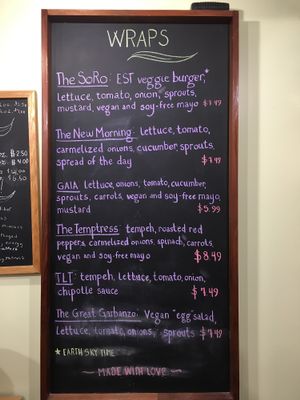 WRAPS
The SoRo: EST veggie burger,*
lettuce, tomato, onion, sprouts,
mustard, vegan and soy-free mayo
The New Morning: lettuce, tomato,
carmelized onions, cucumber, sprouts,
spread of the day
GAIA lettuce, onions, tomato, cucumber,
sprouts, carrots, vegan and soy-free mayo,
mustard $5.99
The Temptress: tempeh, roasted red
peppers, carmelized onions, spinach, carrots,
vegan and soy-free mayo $8.49
TLT: tempeh, lettuce, tomato, onion,
chipotle sauce $7.49
The Great Garbanzo: Vegan "egg" salad,
lettuce, tomato, onions, sprouts $7.49
*EARTH SKY TIME
~ MADE WITH LOVE ~